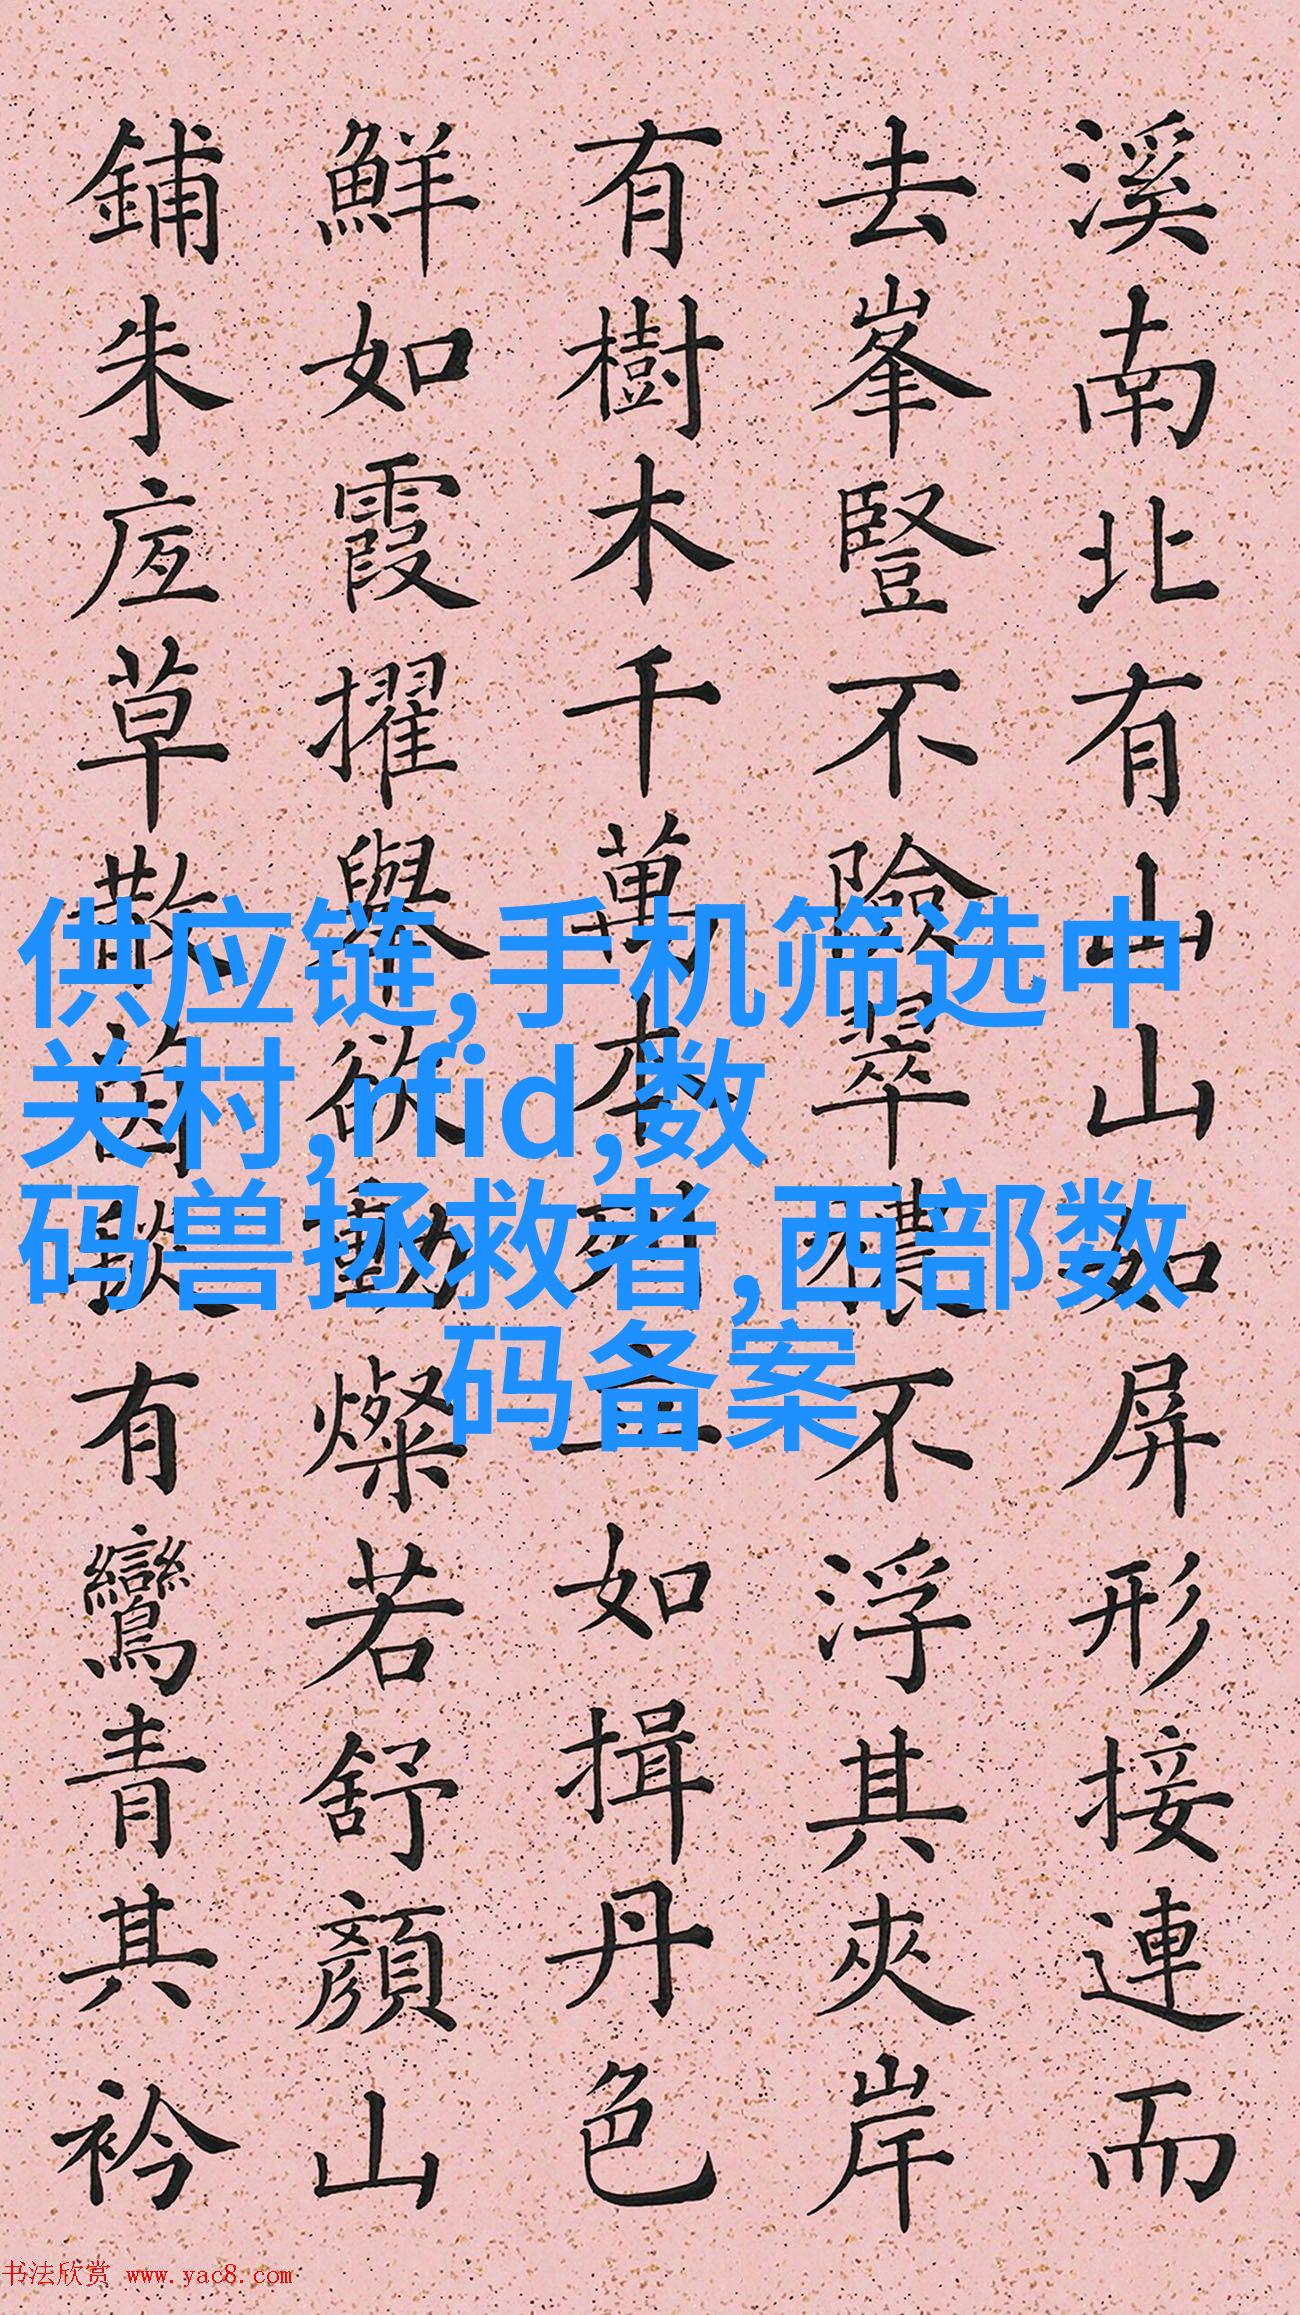 溪南北有山山如屏形接連而
去峯豎不險翠穠不浮其夾岸
有樹木千萬本列立如揖丹色
鮮如霞擢舉欲動燦若舒顔山
鋪朱庋草散茵毯有鸞青其衿
供应链,手机筛选中
关村,rfid,数
码兽拯救者,西部数
码备案
书法欣赏 www.yac8.com